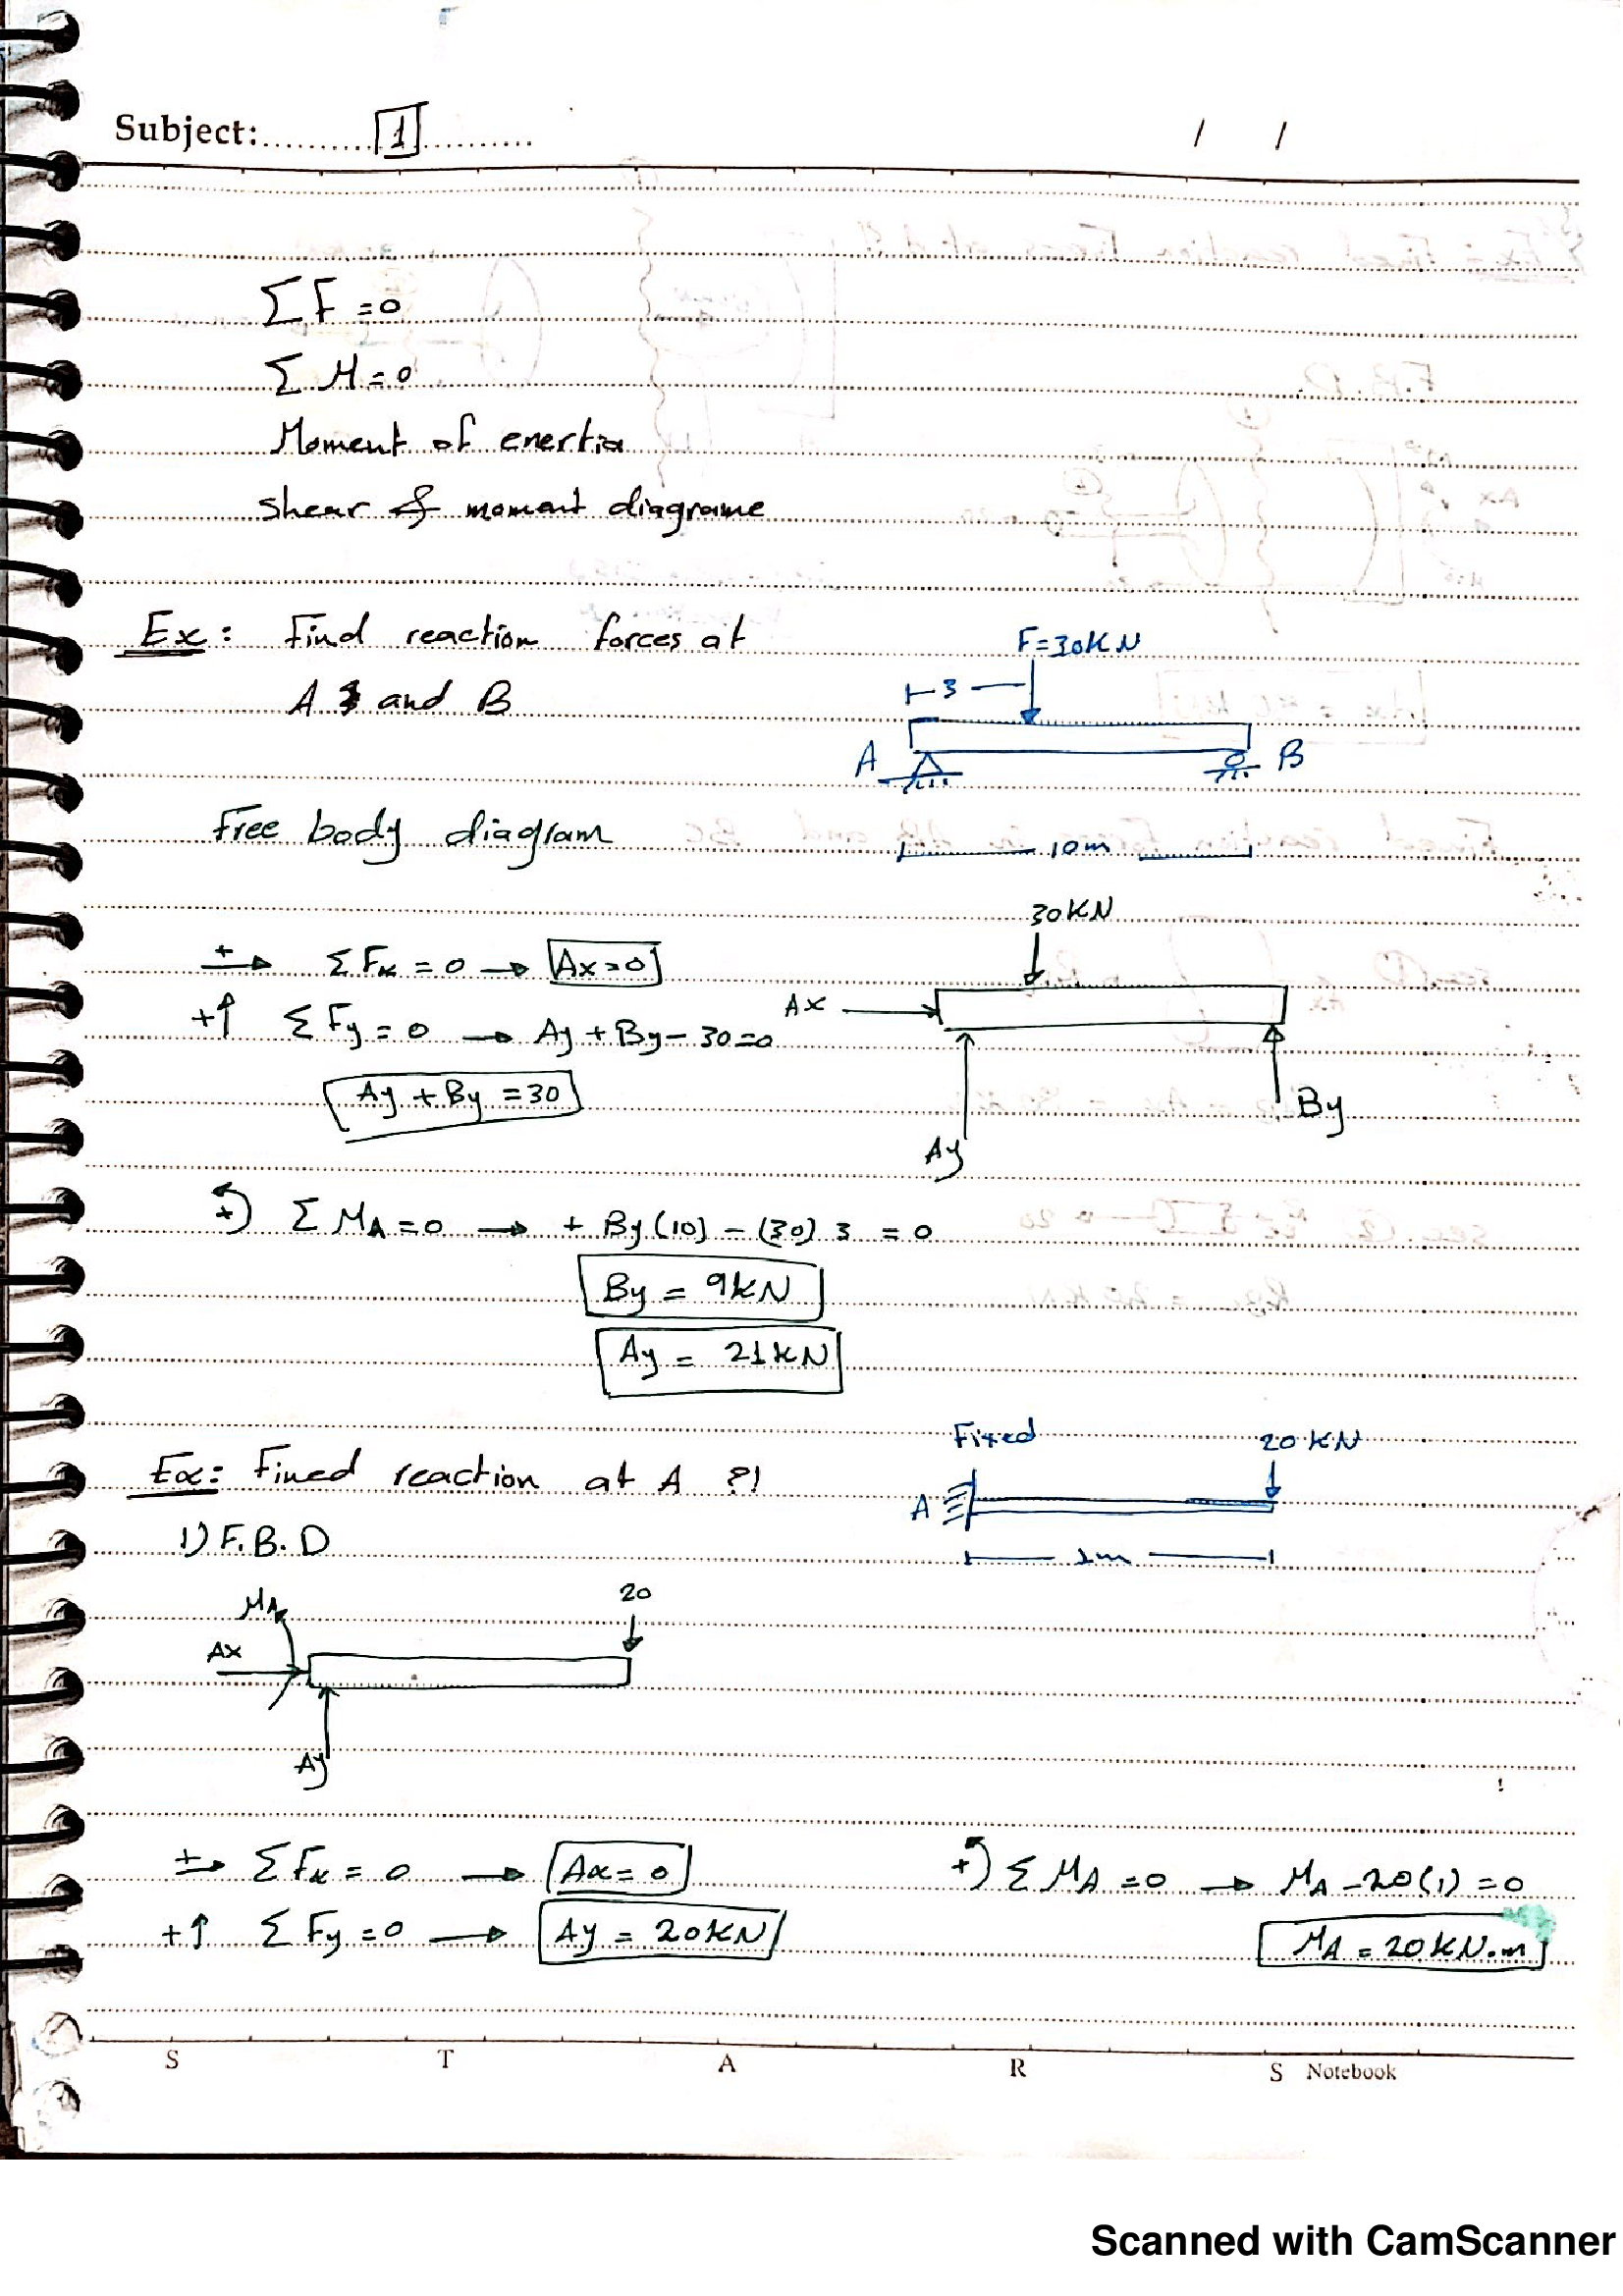 Subject:..........1..........	/	/
ΣF=0
ΣM=0
Moment of enertia
shear & moment diagrame
Ex: Find reaction forces at
A and B
F=30KN
3
A
B
10m
Free body diagram
30KN
Ax
Ay
By
+ → ΣFx=0 → Ax=0
+↑ ΣFy=0 → Ay+By-30=0
Ay+By=30
+ ΣMA=0 → +By(10)-(30)3=0
By=9kN
Ay=21kN
Ex: Fined reaction at A ?!
Fixed
20KN
A
1m
1) F.B.D
MA
20
Ax
Ay
+ → ΣFx=0 → Ax=0
+↑ ΣFy=0 → Ay=20KN
+ ΣMA=0 → MA-20(1)=0
MA=20KN.m
S T A R S Notebook
Scanned with CamScanner